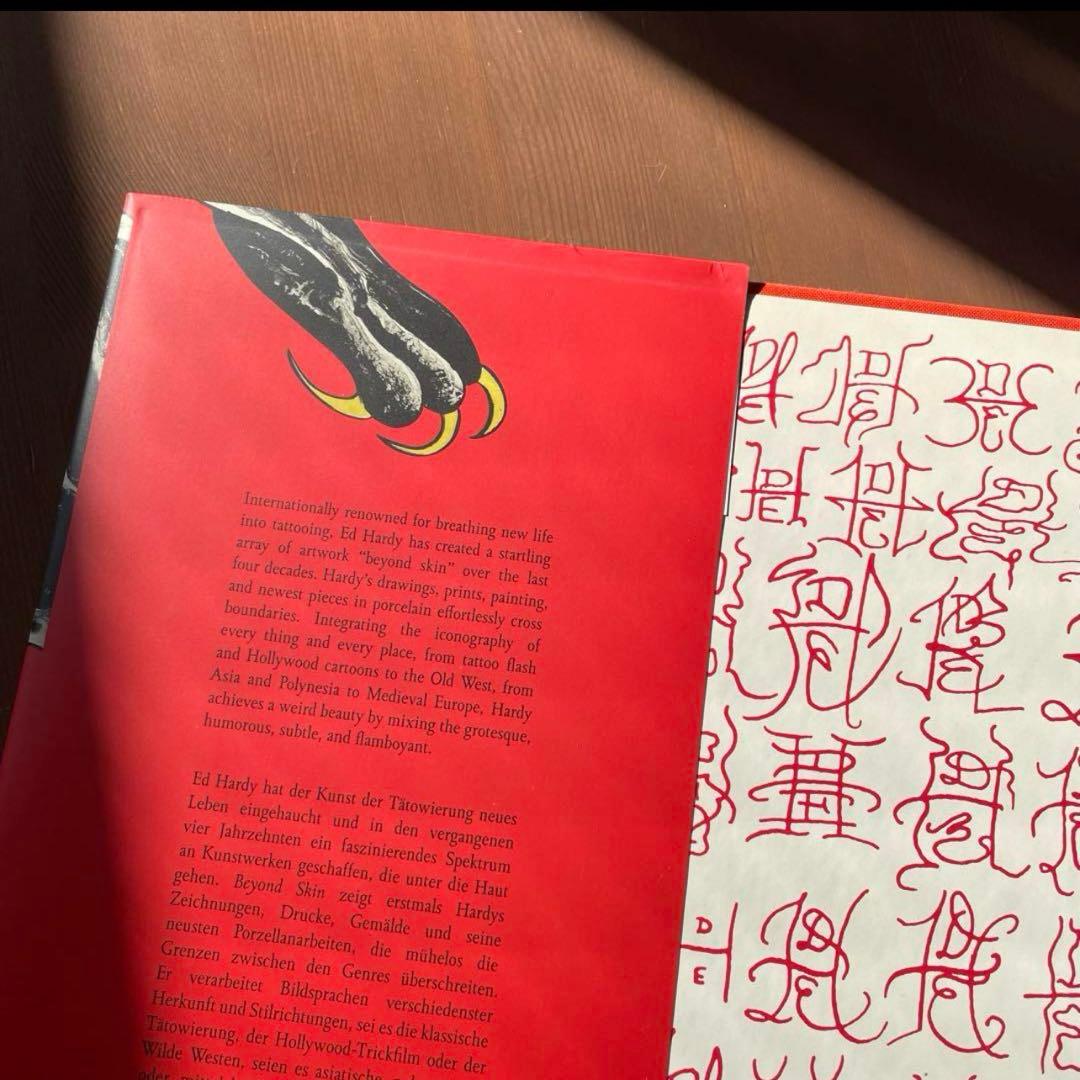 Internationally renowned for breathing new life
into tattooing, Ed Hardy has created a startling
array of artwork “beyond skin” over the last
four decades. Hardy’s drawings, prints, painting,
and newest pieces in porcelain effortlessly cross
boundaries. Integrating the iconography of
every thing and every place, from tattoo flash
and Hollywood cartoons to the Old West, from
Asia and Polynesia to Medieval Europe, Hardy
achieves a weird beauty by mixing the grotesque,
humorous, subtle, and flamboyant.
Ed Hardy hat der Kunst der Tätowierung neues
Leben eingehaucht und in den vergangenen
vier Jahrzehnten ein faszinierendes Spektrum
an Kunstwerken geschaffen, die unter die Haut
gehen. Beyond Skin zeigt erstmals Hardys
Zeichnungen, Drucke, Gemälde und seine
neusten Porzellanarbeiten, die mühelos die
Grenzen zwischen den Genres überschreiten.
Er verarbeitet Bildsprachen verschiedenster
Herkunft und Stilrichtungen, sei es die klassische
Tätowierung, der Hollywood-Trickfilm oder der
Wilde Westen, seien es asiatische
oder
D
E